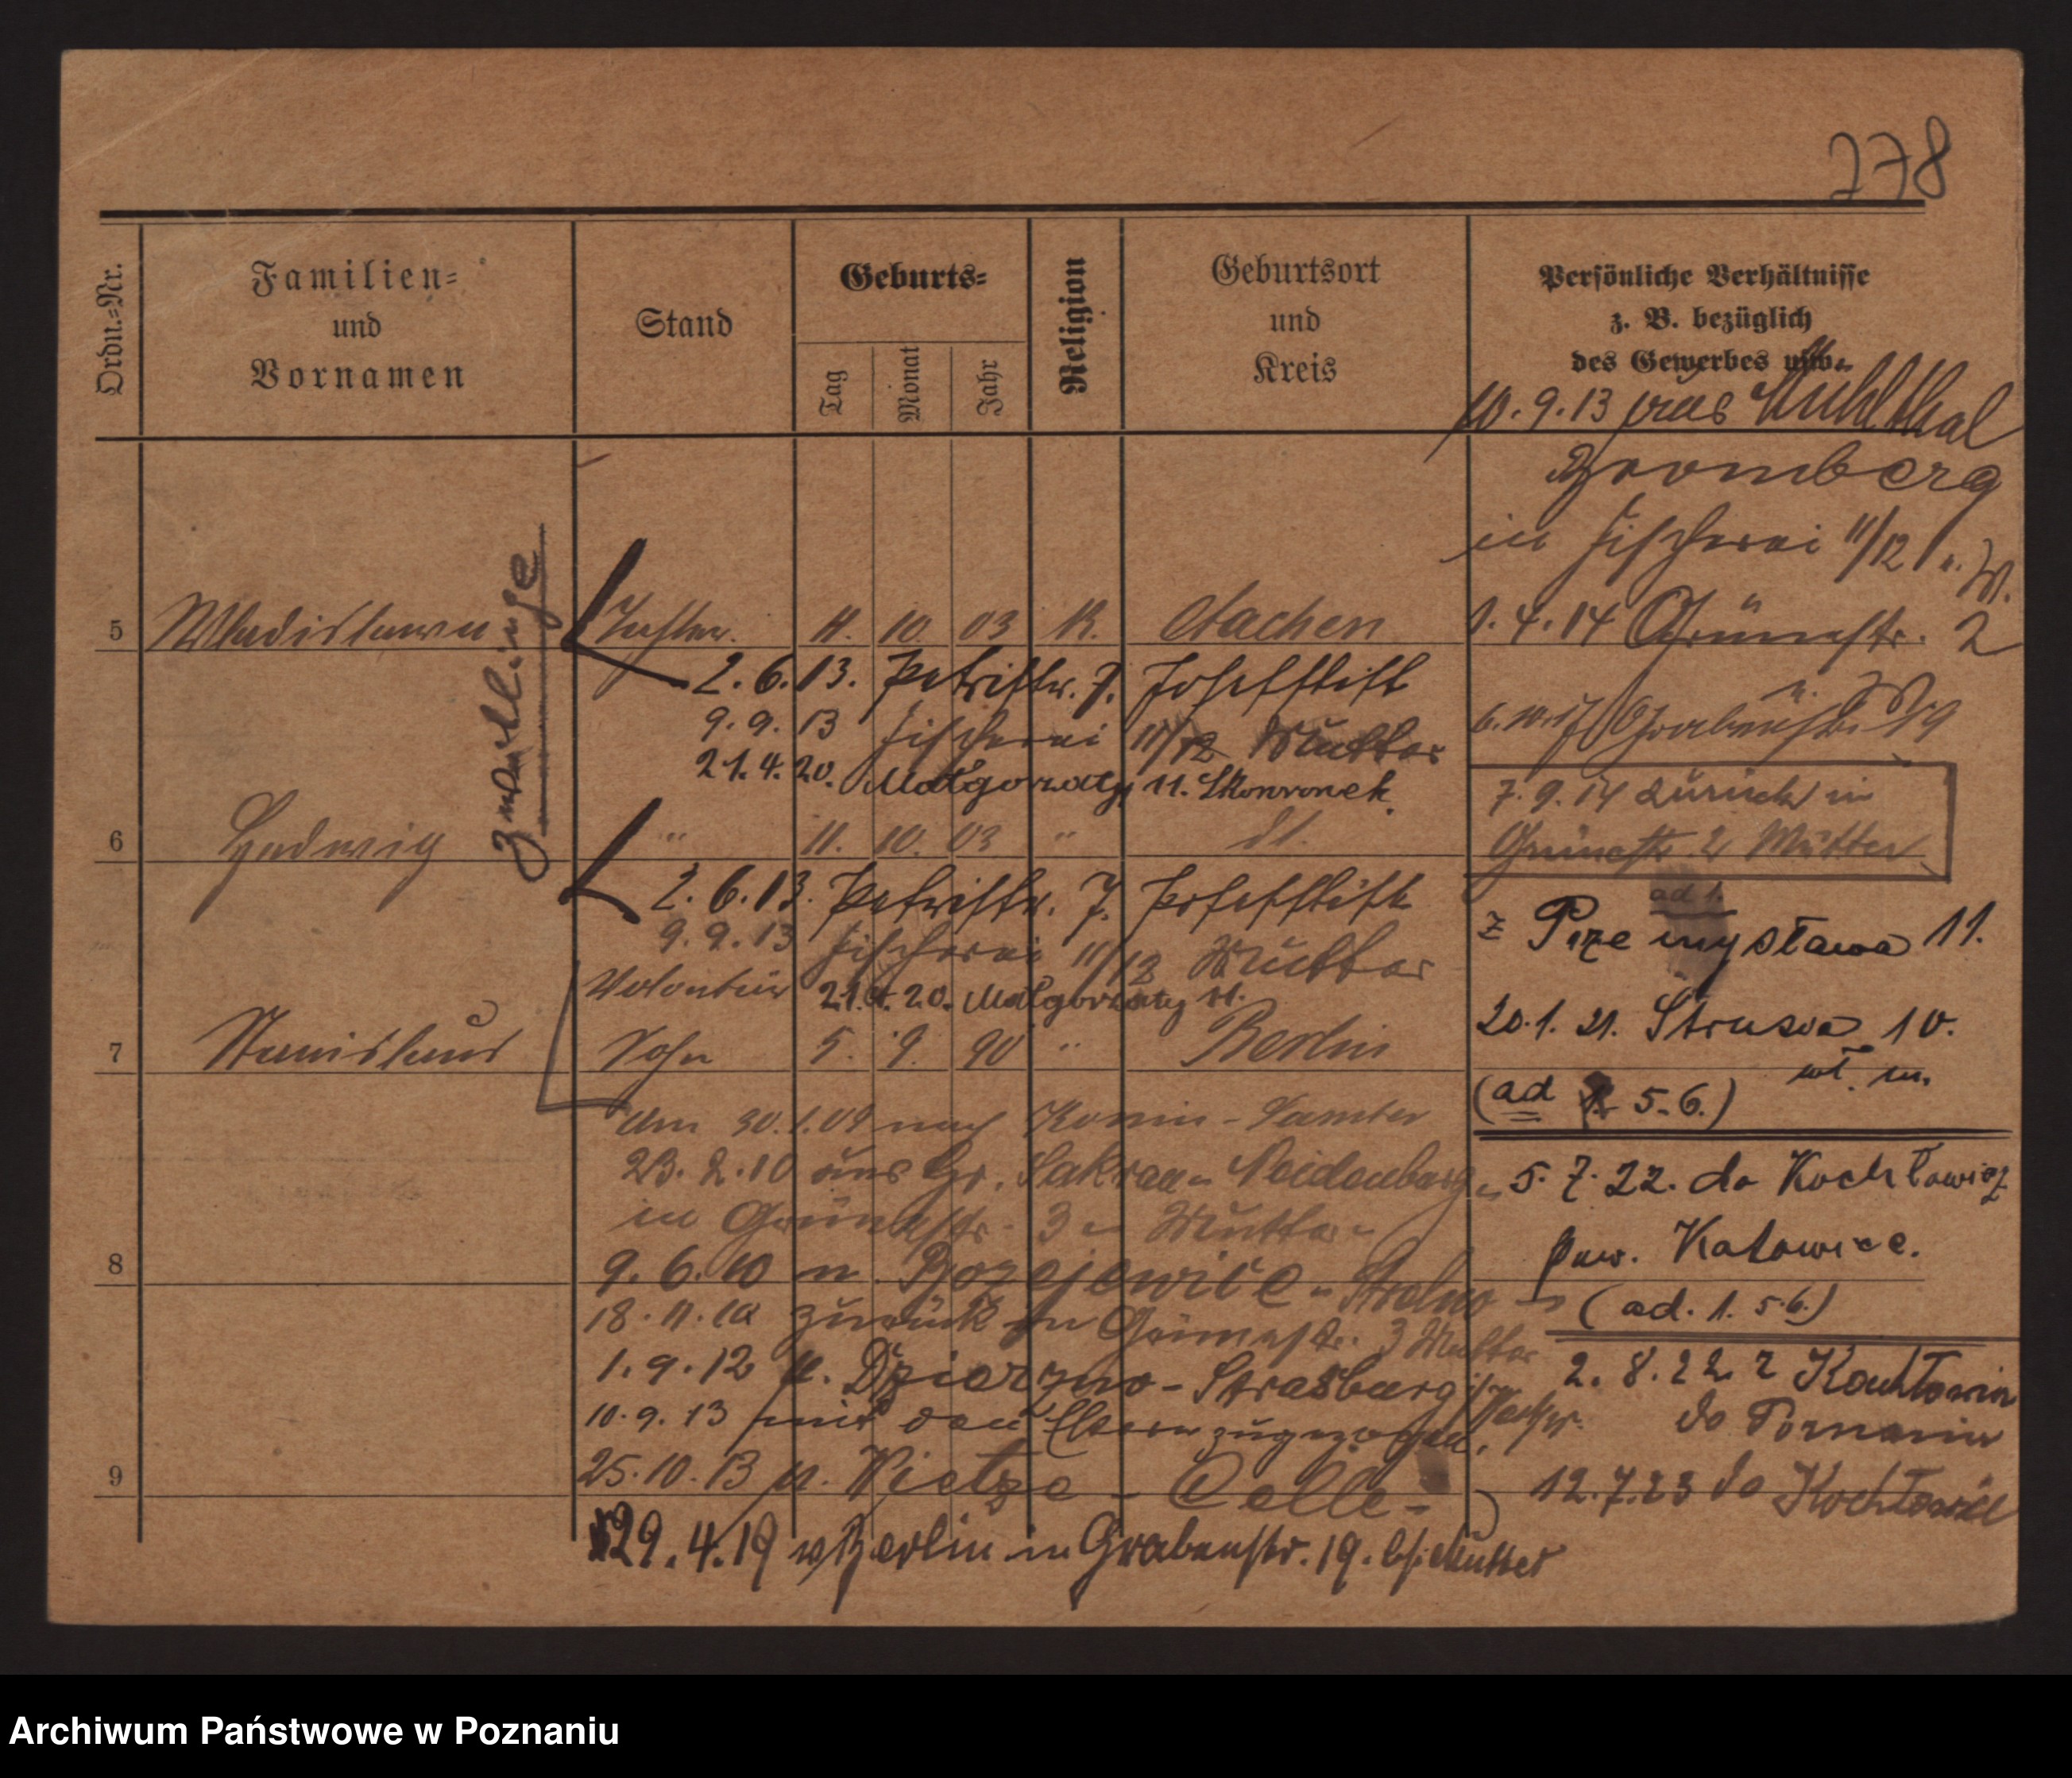 778
Ordn.-Nr.
Familien-
und
Vornamen
Stand
Geburts-
Tag
Monat
Jahr
Religion
Geburtsort
und
Kreis
Persönliche Verhältnisse
z. B. bezüglich
des Gewerbes usw.
10. 9. 13 aus Mühlthal
Bromberg
in Fischerei 11/12
Zwillinge
5 Wladislawa Tochter. 11. 10. 03 K. Aachen
1. 4. 14 Grünestr. 2
2. 6. 13. Petristr. 7. Josefstift
9. 9. 13 Fischerei 11/12 Mutter
21. 4. 20. Małgorzaty 11. Skowronek
Grabenstr. 19
7. 9. 14 zurück in
Grünestr. 2 Mutter
6 Hedwig " 11. 10. 03 " dt.
ad 1.
2. 6. 13. Petristr. 7. Josefstift
9. 9. 13 Fischerei 11/12 Mutter
z Przemysława 11.
Volontär 21. 4. 20. Małgorzaty 11.
7 Stanislaus Sohn 5. 9. 90 " Berlin
20. 1. 21. Strusia 10.
wł. m.
(ad 1. 5. 6.)
Am 30. 1. 09 nach Konin - Samter
23. 2. 10 aus Gr. Sakrau - Neidenburg
in Grünestr. 3 Mutter
5. 7. 22. do Kochłowic
pow. Katowice.
(ad. 1. 5. 6.)
8
9. 6. 10 n. Bozejewice - Strelno
18. 11. 10 zurück in Grünestr. 3 Mutter
1. 9. 12 n. Dzierzno - Strasburg
10. 9. 13 mit den Eltern zugezogen.
2. 8. 22 z Kochłowic
do Poznania
9
25. 10. 13 n. Vietze - Celle
12. 7. 23 do Kochłowic
29. 4. 19 v Berlin in Grabenstr. 19. b/ Mutter
Archiwum Państwowe w Poznaniu